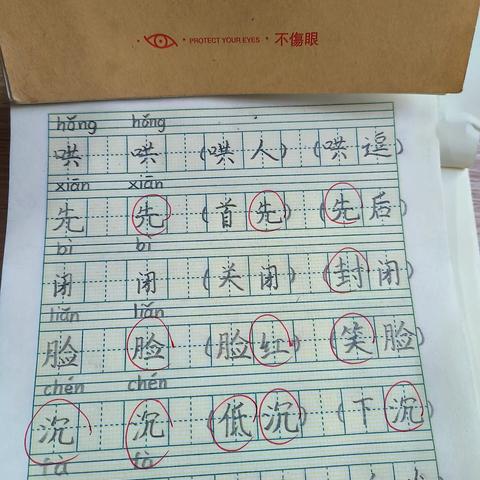 PROTECT YOUR EYES · 不傷眼
hǒng hǒng
哄 哄 (哄人) (哄逗)
xiān xiān
先 先 (首先) (先后)
bì bì
闭 闭 (关闭) (封闭)
liǎn liǎn
脸 脸 (脸红) (笑脸)
chén chén
沉 沉 (低沉) (下沉)